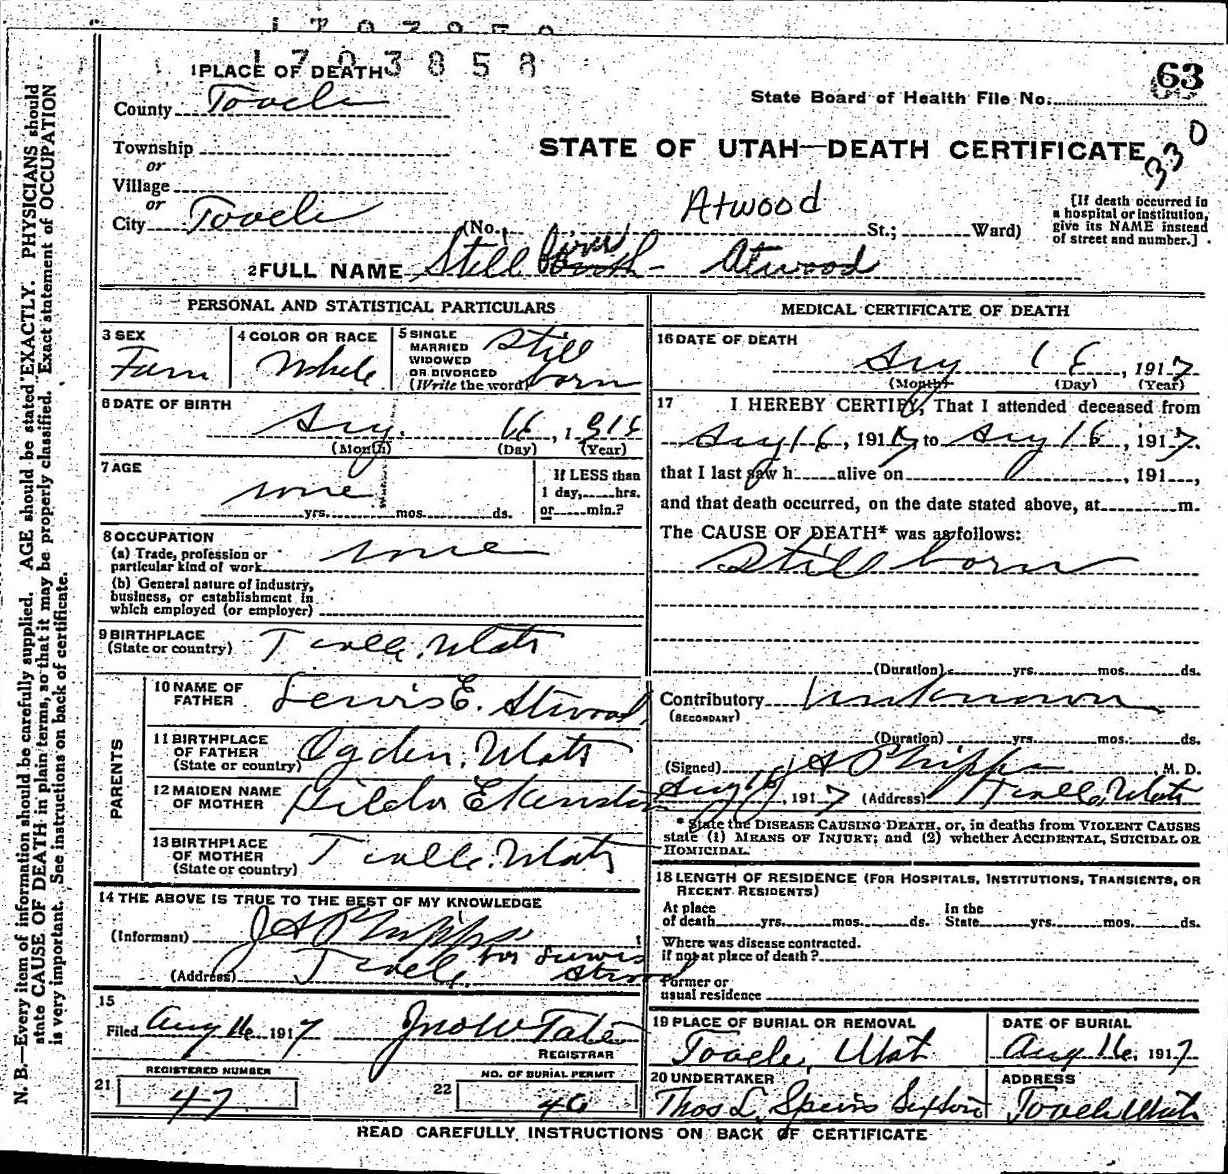 1703858
1 PLACE OF DEATH
63
County Tooele
State Board of Health File No.
Township
STATE OF UTAH—DEATH CERTIFICATE
330
or
Village
or
City Tooele (No. Atwood St.; Ward)
[If death occurred in
a hospital or institution,
give its NAME instead
of street and number.]
2 FULL NAME Still Atwood
PERSONAL AND STATISTICAL PARTICULARS
3 SEX
Fem
4 COLOR OR RACE
White
5 SINGLE
MARRIED
WIDOWED
OR DIVORCED
(Write the word)
Still
born
6 DATE OF BIRTH
Aug. 16, 191
(Month) (Day) (Year)
7 AGE
none
yrs. mos. ds.
If LESS than
1 day, hrs.
or min.?
8 OCCUPATION
(a) Trade, profession or
particular kind of work none
(b) General nature of industry,
business, or establishment in
which employed (or employer)
9 BIRTHPLACE
(State or country) Tooele. Utah
PARENTS
10 NAME OF
FATHER Lewis E. Atwood
11 BIRTHPLACE
OF FATHER
(State or country) Ogden. Utah
12 MAIDEN NAME
OF MOTHER Hilda
13 BIRTHPLACE
OF MOTHER
(State or country) Tooele. Utah
14 THE ABOVE IS TRUE TO THE BEST OF MY KNOWLEDGE
(Informant) J A Phipps
for Lewis
(Address) Tooele. Atwood
15
Filed Aug 16 1917 Jno W Tate
REGISTRAR
REGISTERED NUMBER
21 47
NO. OF BURIAL PERMIT
22 40
MEDICAL CERTIFICATE OF DEATH
16 DATE OF DEATH
Aug 16, 1917
(Month) (Day) (Year)
17 I HEREBY CERTIFY, That I attended deceased from
Aug 16, 1917 to Aug 16, 1917.
that I last saw h alive on , 191 ,
and that death occurred, on the date stated above, at m.
The CAUSE OF DEATH* was as follows:
Still born
(Duration) yrs. mos. ds.
Contributory Unknown
(SECONDARY)
(Duration) yrs. mos. ds.
(Signed) J A Phipps M. D.
Aug 16, 1917 (Address) Tooele, Utah
* State the DISEASE CAUSING DEATH, or, in deaths from VIOLENT CAUSES
state (1) MEANS OF INJURY; and (2) whether ACCIDENTAL, SUICIDAL OR
HOMICIDAL.
18 LENGTH OF RESIDENCE (FOR HOSPITALS, INSTITUTIONS, TRANSIENTS, OR
RECENT RESIDENTS)
At place
of death yrs. mos. ds.
In the
State yrs. mos. ds.
Where was disease contracted.
if not at place of death?
Former or
usual residence
19 PLACE OF BURIAL OR REMOVAL
Tooele, Utah
DATE OF BURIAL
Aug 16, 1917
20 UNDERTAKER
Thos L Speirs Sexton
ADDRESS
Tooele Utah
READ CAREFULLY INSTRUCTIONS ON BACK OF CERTIFICATE
N. B.—Every item of information should be carefully supplied. AGE should be stated EXACTLY. PHYSICIANS should
state CAUSE OF DEATH in plain terms, so that it may be properly classified. Exact statement of OCCUPATION
is very important. See instructions on back of certificate.